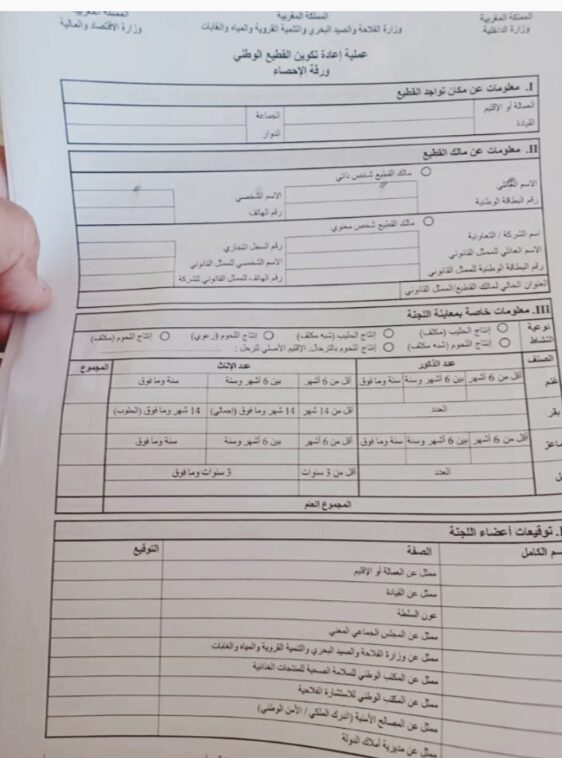 المملكة المغربية
وزارة الداخلية
المملكة المغربية
وزارة الفلاحة والصيد البحري والتنمية القروية والمياه والغابات
المملكة المغربية
وزارة الاقتصاد والمالية
عملية إعادة تكوين القطيع الوطني
ورقة الإحصاء
I. معلومات عن مكان تواجد القطيع
العمالة أو الإقليم الجماعة
القيادة الدوار
II. معلومات عن مالك القطيع
مالك القطيع شخص ذاتي
الاسم العائلي الاسم الشخصي
رقم البطاقة الوطنية رقم الهاتف
مالك القطيع شخص معنوي
اسم الشركة / التعاونية رقم السجل التجاري
الاسم العائلي للممثل القانوني الاسم الشخصي للممثل القانوني
رقم البطاقة الوطنية للممثل القانوني رقم الهاتف للممثل القانوني للشركة
العنوان الحالي لمالك القطيع/الممثل القانوني
III. معلومات خاصة بمعاينة اللجنة
نوعية النشاط
إنتاج الحليب (مكثف) إنتاج الحليب (شبه مكثف) إنتاج اللحوم (رعوي) إنتاج اللحوم (مكثف)
إنتاج اللحوم (شبه مكثف) إنتاج اللحوم بالترحال. الإقليم الأصلي للرحل : ..............................
الصنف عدد الذكور عدد الإناث المجموع
غنم أقل من 6 أشهر بين 6 أشهر وسنة سنة وما فوق أقل من 6 أشهر بين 6 أشهر وسنة سنة وما فوق
بقر العدد أقل من 14 شهر 14 شهر وما فوق (إجمالي) 14 شهر وما فوق (الحلوب)
ماعز أقل من 6 أشهر بين 6 أشهر وسنة سنة وما فوق أقل من 6 أشهر بين 6 أشهر وسنة سنة وما فوق
العدد أقل من 3 سنوات 3 سنوات وما فوق
المجموع العام
توقيعات أعضاء اللجنة
الكامل الصفة التوقيع
ممثل عن العمالة أو الإقليم
ممثل عن القيادة
عون السلطة
ممثل عن المجلس الجماعي المعني
ممثل عن وزارة الفلاحة والصيد البحري والتنمية القروية والمياه والغابات
ممثل عن المكتب الوطني للسلامة الصحية للمنتجات الغذائية
ممثل عن المكتب الوطني للاستشارة الفلاحية
ممثل عن المصالح الأمنية (الدرك الملكي / الأمن الوطني)
ممثل عن مديرية أملاك الدولة